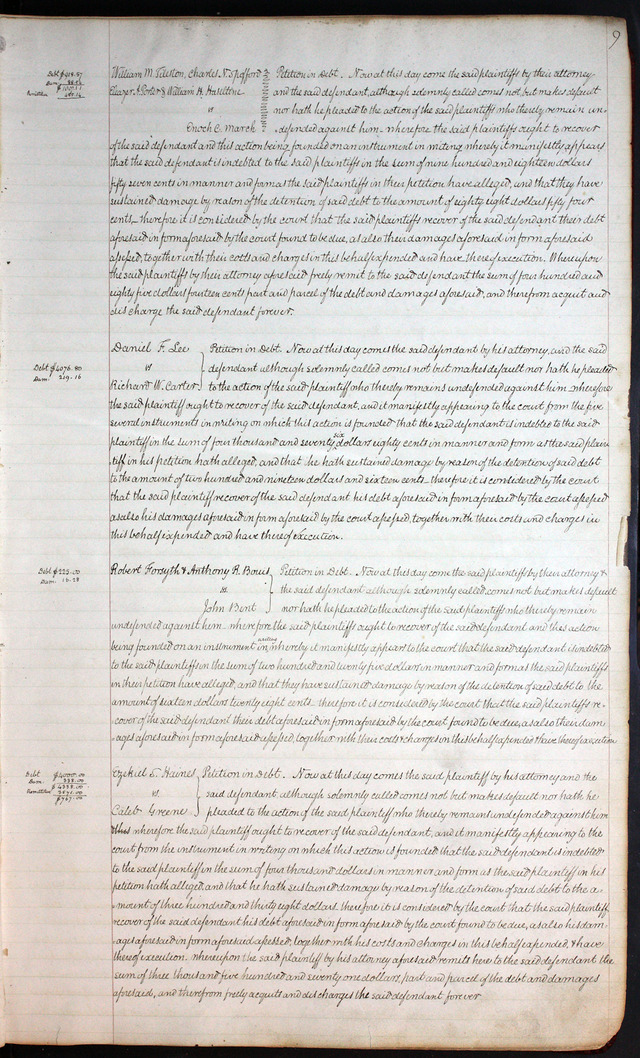 9
Debt $918.57
Dam 88.54
$1007.11
Remittitur 485.14
William M. Tileston, Charles N. Spofford
Eliazer A. Porter & William H. Haseltine
vs
Enoch C. March
Petition in Debt. Now at this day come the said plaintiffs by their attorney
and the said defendant, although solemnly called comes not but makes default
nor hath he pleaded to the action of the said plaintiffs who thereby remains un-
defended against him wherefore the said plaintiffs ought to recover
of the said defendant and this action being founded on an instrument in writing whereby it manifestly appears
that the said defendant is indebted to the said plaintiffs in the sum of nine hundred and eighteen dollars
fifty seven cents in manner and form as the said plaintiffs in their petition have alleged, and that they have
sustained damage by reason of the detention of said debt to the amount of eighty eight dollars fifty four
cents therefore it is considered by the court that the said plaintiffs recover of the said defendant their debt
aforesaid in form aforesaid by the court found to be due, as also their damages aforesaid in form aforesaid
assessed, together with their costs and charges in this behalf expended and have thereof execution. Whereupon
the said plaintiffs by their attorney aforesaid freely remit to the said defendant the sum of four hundred and
eighty five dollars fourteen cents part and parcel of the debt and damages aforesaid, and therefrom acquit and
discharge the said defendant forever.
Debt $4076.80
Dam 219.16
Daniel F. Lee
vs
Richard W. Carter
Petition in Debt. Now at this day comes the said defendant by his attorney, and the said
defendant although solemnly called comes not but makes default nor hath he pleaded
to the action of the said plaintiff who thereby remains undefended against him wherefore
the said plaintiff ought to recover of the said defendant, and it manifestly appearing to the court from the five
several instruments in writing on which this action is founded that the said defendant is indebted to the said
plaintiff in the sum of four thousand and seventy six dollar eighty cents in manner and form as the said plain
tiff in his petition hath alleged, and that he hath sustained damage by reason of the detention of said debt
to the amount of two hundred and nineteen dollars and sixteen cents therefore it is considered by the court
that the said plaintiff recover of the said defendant his debt aforesaid in form aforesaid by the court assessed
as also his damages aforesaid in form aforesaid by the court assessed, together with their costs and charges in
this behalf expended and have thereof execution.
Debt $225.00
Dam 16.28
Robert Forsyth & Anthony R. Bouis
vs
John Bent
Petition in Debt. Now at this day come the said plaintiffs by their attorney &
the said defendant although solemnly called comes not but makes default
nor hath he pleaded to the action of the said plaintiff who thereby remain
undefended against him wherefore the said plaintiffs ought to recover of the said defendant and this action
being founded on an instrument in writing whereby it manifestly appears to the court that the said defendant is indebted
to the said plaintiffs in the sum of two hundred and twenty five dollars in manner and form as the said plaintiffs
in their petition have alleged, and that they have sustained damage by reason of the detention of said debt to the
amount of sixteen dollars twenty eight cents therefore it is considered by the court that the said plaintiffs re-
cover of the said defendant their debt aforesaid in form aforesaid by the court found to be due, as also their dam
ages aforesaid in form aforesaid assessed, together with their costs & charges in this behalf expended & have thereof execution
Debt $4000.00
Dam 338.00
$4338.00
Remittitur 3571.00
$767.00
Ezekiel S. Haines
vs.
Caleb Greene
Petition in Debt. Now at this day comes the said plaintiff by his attorney and the
said defendant although solemnly called comes not but makes default nor hath he
pleaded to the action of the said plaintiff who thereby remains undefended against him
wherefore the said plaintiff ought to recover of the said defendant, and it manifestly appearing to the
court from the instrument in writing on which this action is founded that the said defendant is indebted
to the said plaintiff in the sum of four thousand dollars in manner and form as the said plaintiff in his
petition hath alleged, and that he hath sustained damage by reason of the detention of said debt to the a-
mount of three hundred and thirty eight dollars therefore it is considered by the court that the said plaintiff
recover of the said defendant his debt aforesaid in form aforesaid by the court found to be due, as also his dam-
ages aforesaid in form aforesaid assessed, together with his costs and charges in this behalf expended, & have
thereof execution. whereupon the said plaintiff by his attorney aforesaid remits here to the said defendant the
sum of three thousand five hundred and seventy one dollars, part and parcel of the debt and damages
aforesaid, and therefrom freely acquits and discharges the said defendant forever.